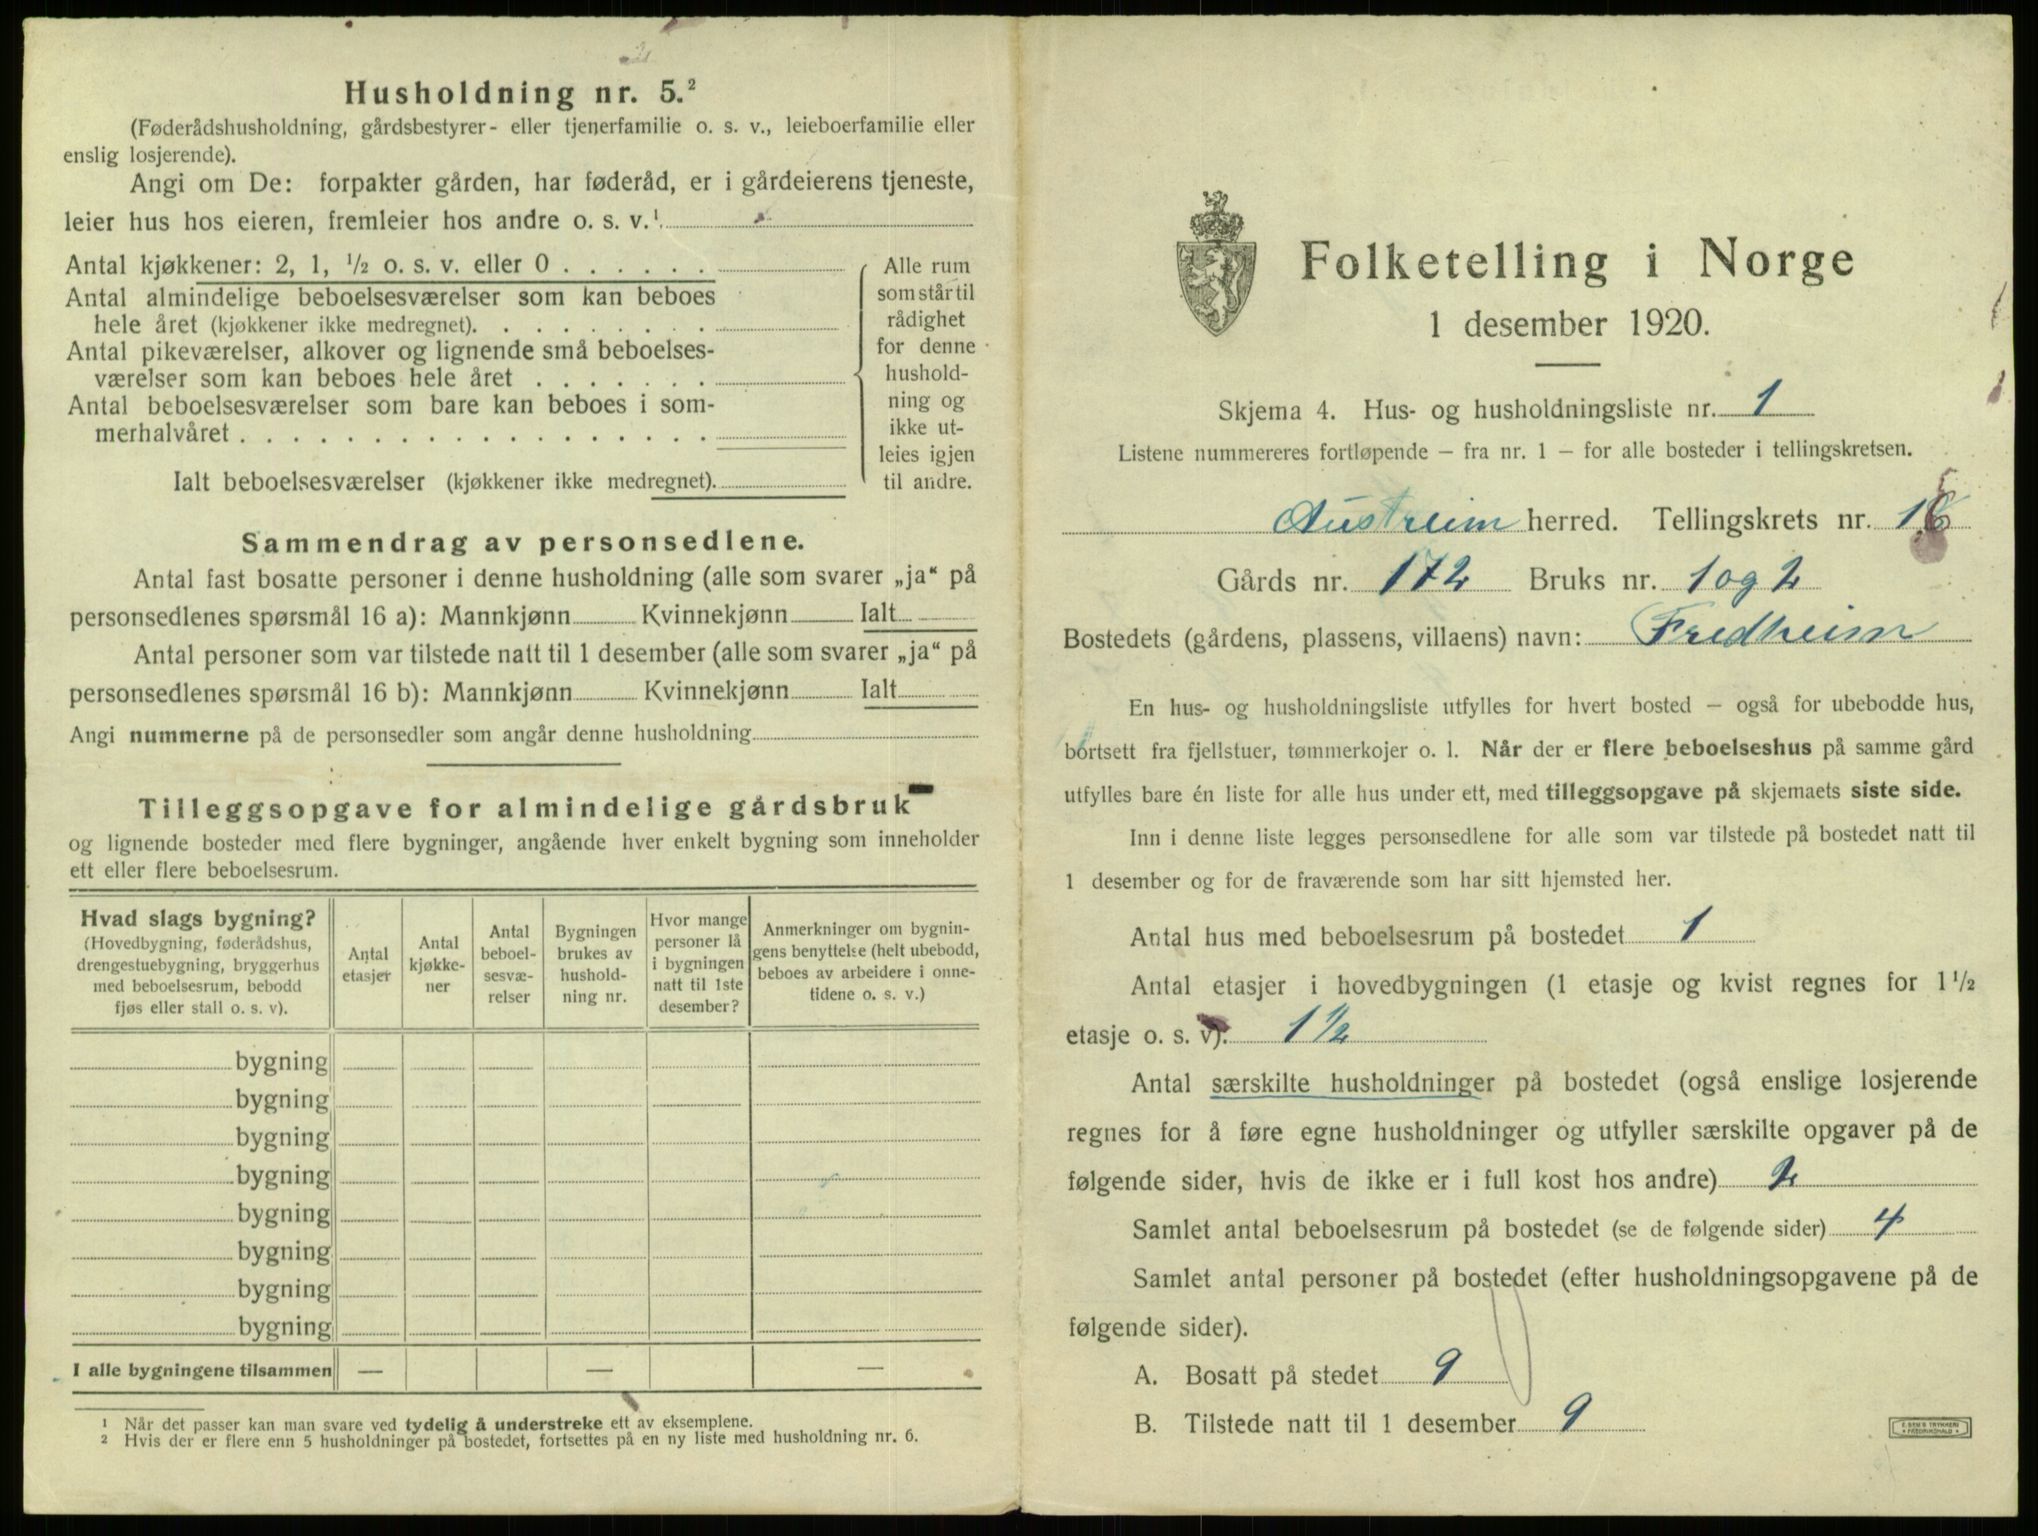 Husholdning nr. 5.²
(Føderådshusholdning, gårdsbestyrer- eller tjenerfamilie o. s. v., leieboerfamilie eller
enslig losjerende).
Angi om De: forpakter gården, har føderåd, er i gårdeierens tjeneste,
leier hus hos eieren, fremleier hos andre o. s. v.¹
Antal kjøkkener: 2, 1, ½ o. s. v. eller 0
Antal almindelige beboelsesværelser som kan beboes
hele året (kjøkkener ikke medregnet).
Antal pikeværelser, alkover og lignende små beboelses-
værelser som kan beboes hele året
Antal beboelsesværelser som bare kan beboes i som-
merhalvåret
Ialt beboelsesværelser (kjøkkener ikke medregnet).
Alle rum
som står til
rådighet
for denne
hushold-
ning og
ikke ut-
leies igjen
til andre.
Sammendrag av personsedlene.
Antal fast bosatte personer i denne husholdning (alle som svarer „ja“ på
personsedlenes spørsmål 16 a): Mannkjønn Kvinnekjønn Ialt
Antal personer som var tilstede natt til 1 desember (alle som svarer „ja“ på
personsedlenes spørsmål 16 b): Mannkjønn Kvinnekjønn Ialt
Angi nummerne på de personsedler som angår denne husholdning
Tilleggsopgave for almindelige gårdsbruk
og lignende bosteder med flere bygninger, angående hver enkelt bygning som inneholder
ett eller flere beboelsesrum.
Hvad slags bygning?
(Hovedbygning, føderådshus,
drengestuebygning, bryggerhus
med beboelsesrum, bebodd
fjøs eller stall o. s. v).
Antal
etasjer
Antal
kjøkke-
ner
Antal
beboel-
sesvæ-
relser
Bygningen
brukes av
hushold-
ning nr.
Hvor mange
personer lå
i bygningen
natt til 1ste
desember?
Anmerkninger om bygnin-
gens benyttelse (helt ubebodd,
beboes av arbeidere i onne-
tidene o. s. v.)
bygning
bygning
bygning
bygning
bygning
bygning
bygning
bygning
I alle bygningene tilsammen — — —
¹ Når det passer kan man svare ved tydelig å understreke ett av eksemplene.
² Hvis der er flere enn 5 husholdninger på bostedet, fortsettes på en ny liste med husholdning nr. 6.
Folketelling i Norge
1 desember 1920.
Skjema 4. Hus- og husholdningsliste nr. 1
Listene nummereres fortløpende – fra nr. 1 – for alle bosteder i tellingskretsen.
Austreim herred. Tellingskrets nr.
Gårds nr. 172 Bruks nr. 1 og 2
Bostedets (gårdens, plassens, villaens) navn: Fredheim
En hus- og husholdningsliste utfylles for hvert bosted – også for ubebodde hus,
bortsett fra fjellstuer, tømmerkojer o. l. Når der er flere beboelseshus på samme gård
utfylles bare én liste for alle hus under ett, med tilleggsopgave på skjemaets siste side.
Inn i denne liste legges personsedlene for alle som var tilstede på bostedet natt til
1 desember og for de fraværende som har sitt hjemsted her.
Antal hus med beboelsesrum på bostedet 1
Antal etasjer i hovedbygningen (1 etasje og kvist regnes for 1½
etasje o. s. v). 1½
Antal særskilte husholdninger på bostedet (også enslige losjerende
regnes for å føre egne husholdninger og utfyller særskilte opgaver på de
følgende sider, hvis de ikke er i full kost hos andre) 2
Samlet antal beboelsesrum på bostedet (se de følgende sider) 4
Samlet antal personer på bostedet (efter husholdningsopgavene på de
følgende sider).
A. Bosatt på stedet 9
B. Tilstede natt til 1 desember 9